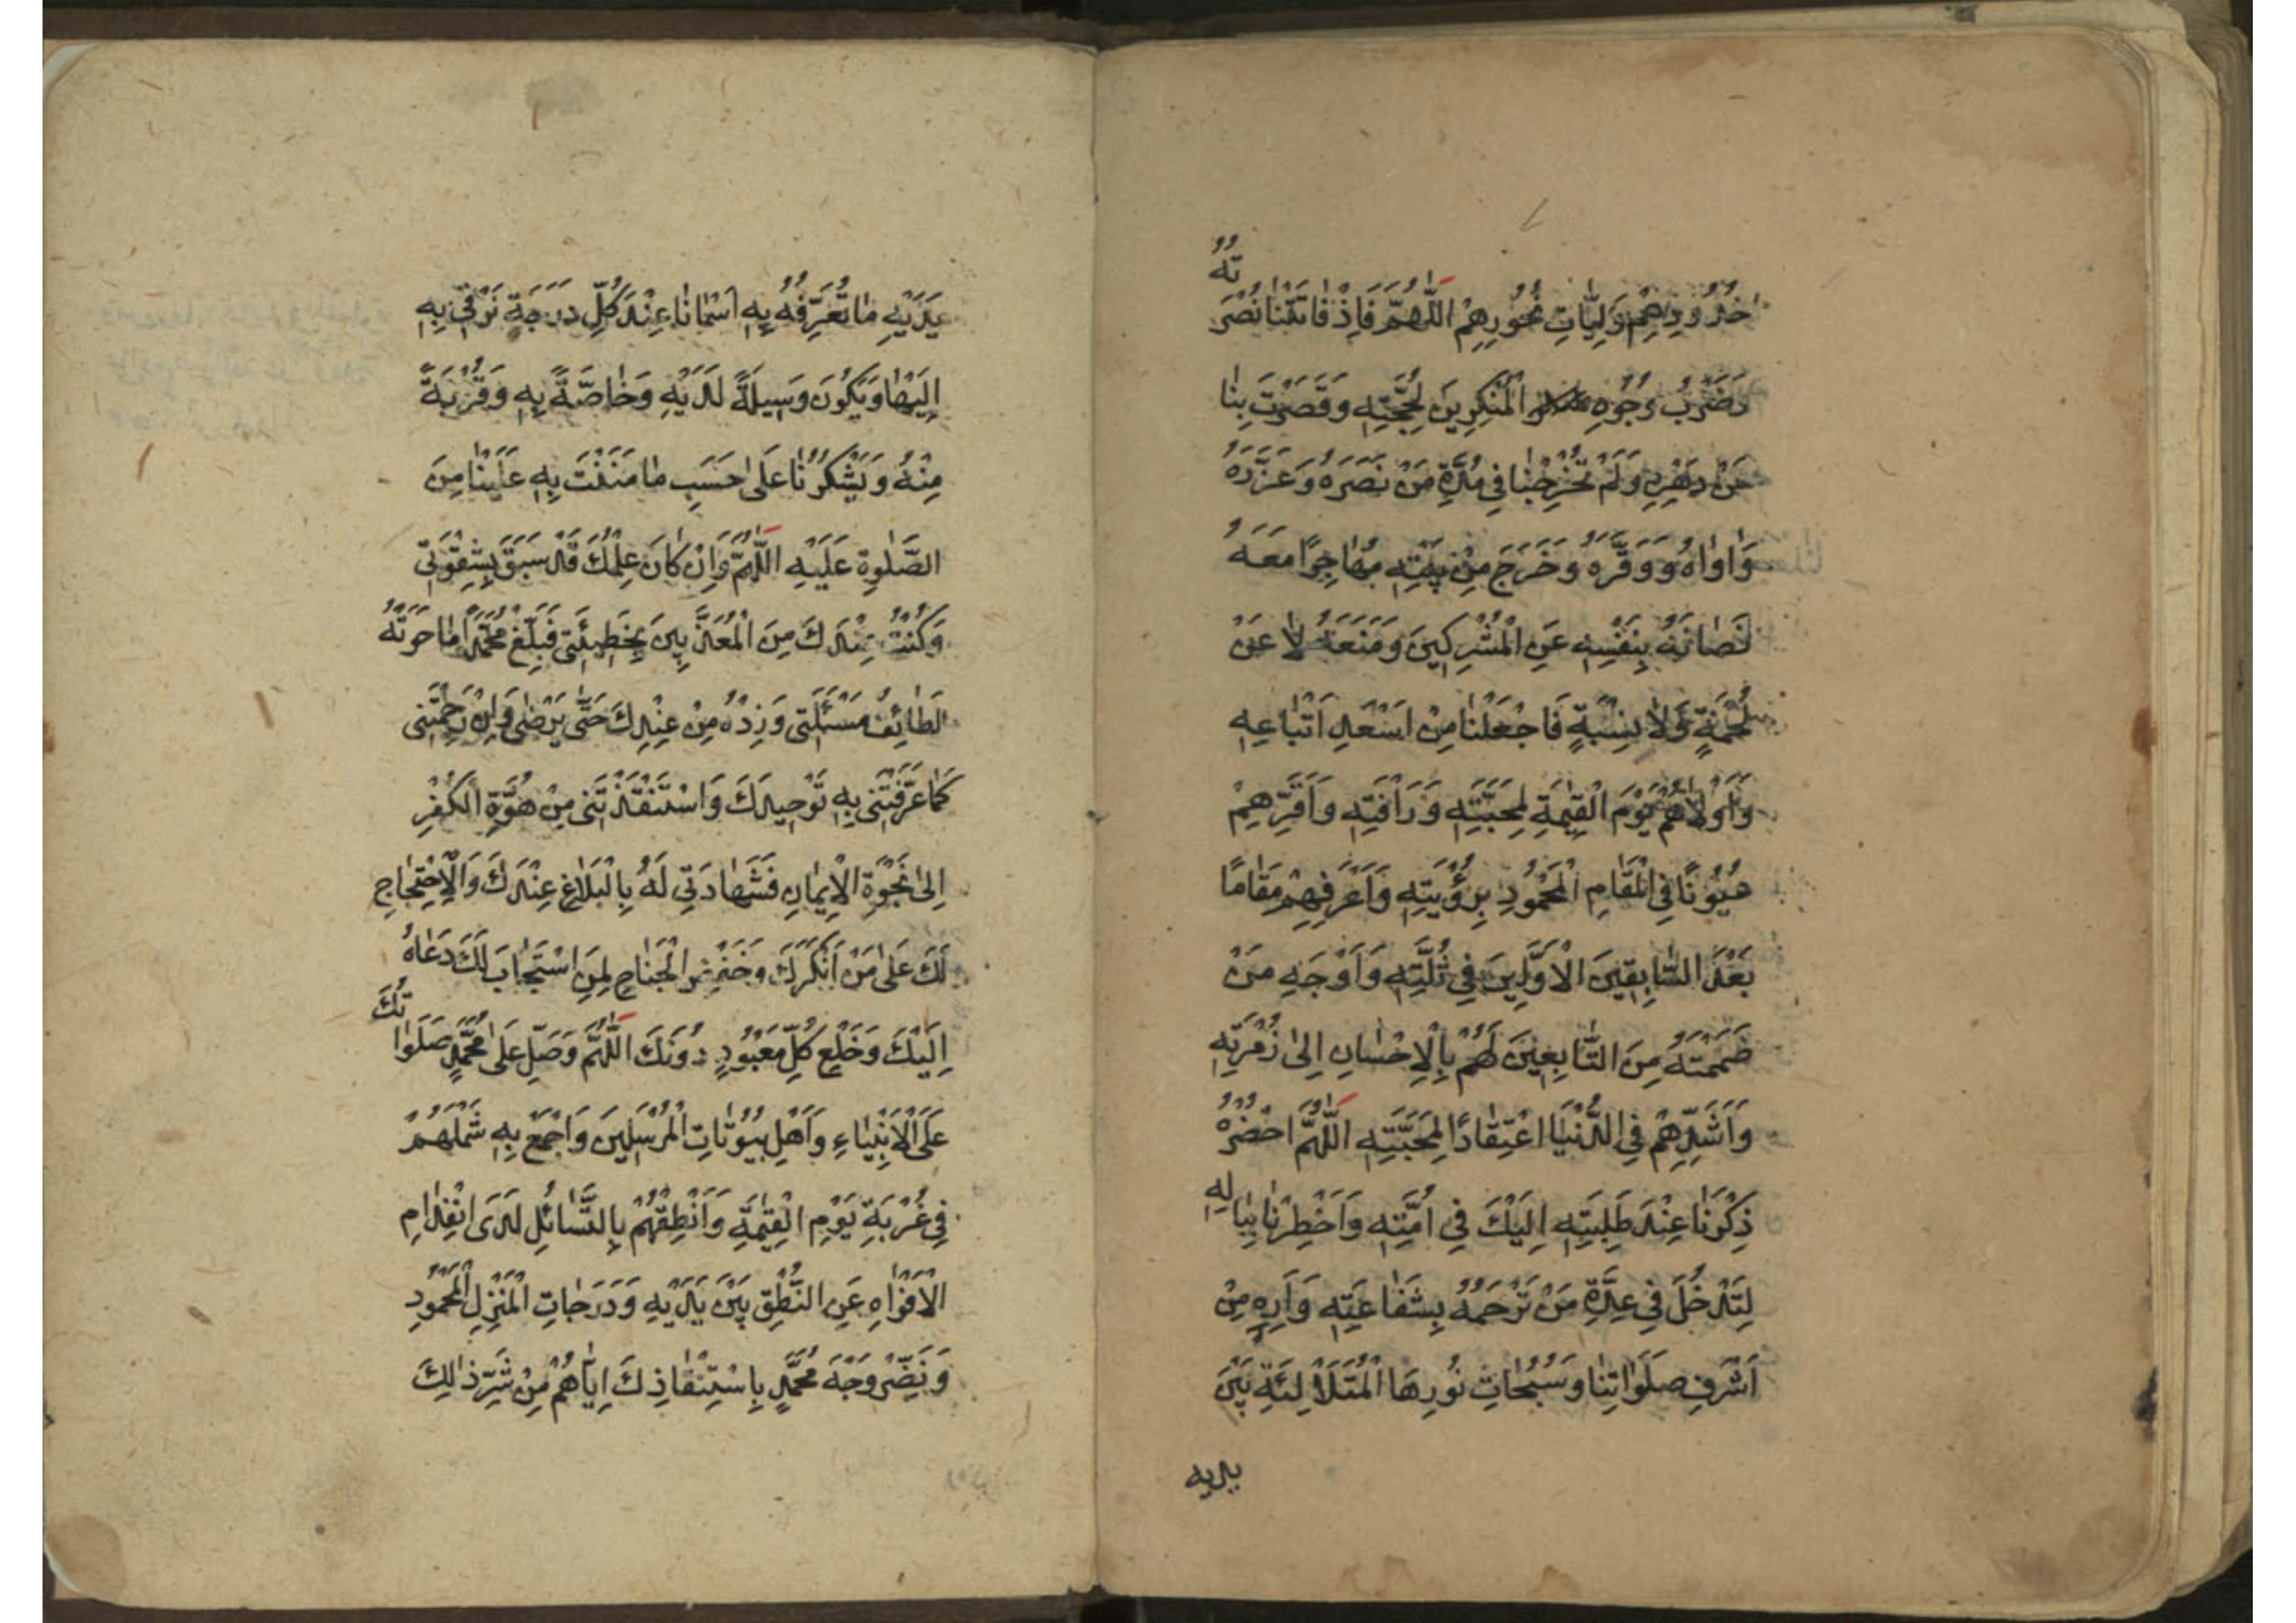 خُدُودِهِمْ وَلِبَّاتِ نُحُورِهِمْ اَللّٰهُمَّ فَاِذْ فَاتَتْنَا نُصْرَتُهُ
وَضَرْبُ وُجُوهِ الْمُنْكِرِينَ لِحُجَّتِهِ وَقَصُرَتْ بِنَا
عَنْ دَهْرِهِ وَلَمْ تُخْرِجْنَا فِي مُدَّةِ مَنْ نَصَرَهُ وَعَزَّرَهُ
وَاٰوَاهُ وَوَقَّرَهُ وَخَرَجَ مِنْ بَيْتِهِ مُهَاجِرًا مَعَهُ
فَصَانَهُ بِنَفْسِهِ عَنِ الْمُشْرِكِينَ وَمَنَعَهُ لَا عَنْ
لُحْمَةٍ وَلَا بِنِسْبَةٍ فَاجْعَلْنَا مِنْ اَسْعَدِ اَتْبَاعِهِ
وَاَوْلَاهُمْ يَوْمَ الْقِيٰمَةِ لِمَحَبَّتِهِ وَرَأْفَتِهِ وَاَقَرِّهِمْ
عُيُونًا فِي الْمَقَامِ الْمَحْمُودِ بِرُؤْيَتِهِ وَاَعْرَفِهِمْ مَقَامًا
بَعْدَ السَّابِقِينَ الْاَوَّلِينَ فِي ثُلَّتِهِ وَاَوْجَهِ مَنْ
ضَمَمْتَهُ مِنَ التَّابِعِينَ لَهُمْ بِالْاِحْسَانِ اِلٰى زُمْرَتِهِ
وَاَشَدِّهِمْ فِي الدُّنْيَا اعْتِقَادًا لِمَحَبَّتِهِ اَللّٰهُمَّ احْضُرْهُ
ذِكْرَنَا عِنْدَ طَلِبَتِهِ اِلَيْكَ فِي اُمَّتِهِ وَاَخْطِرْنَا بِبَالِهِ
لِتَدْخُلَ فِي عِدَّةِ مَنْ تَرْحَمُهُ بِشَفَاعَتِهِ وَاَرِهِ مِنْ
اَشْرَفِ صَلَوَاتِنَا وَسُبُحَاتِ نُورِهَا الْمُتَلَأْلِئَةِ بَيْنَ
يديه
يَدَيْهِ مَا تُعَرِّفُهُ بِهِ اَسْمَانَا عِنْدَ كُلِّ دَرَجَةٍ نَرْقٰى بِهِ
اِلَيْهَا وَيَكُونَ وَسِيلَةً لَدَيْهِ وَخَاصَّةً بِهِ وَقُرْبَةً
مِنْهُ وَيَشْكُرُنَا عَلٰى حَسَبِ مَا مَنَنْتَ بِهِ عَلَيْنَا مِنَ
الصَّلٰوةِ عَلَيْهِ اَللّٰهُمَّ وَاِنْ كَانَ عِلْمُكَ قَدْ سَبَقَ بِشِقْوَتِي
وَكُنْتُ عِنْدَكَ مِنَ الْمُعَذَّبِينَ بِخَطِيئَتِي فَبَلِّغْ مُحَمَّدًا مَا حَوَتْهُ
لَطَائِفُ مَسْئَلَتِي وَزِدْهُ مِنْ عِنْدِكَ حَتّٰى يَرْضٰى وَاِنْ رَحِمْتَنِي
كَمَا عَرَّفْتَنِي بِهِ تَوْحِيدَكَ وَاسْتَنْقَذْتَنِي مِنْ هُوَّةِ الْكُفْرِ
اِلٰى نَجْوَةِ الْاِيمَانِ فَشَهَادَتِي لَهُ بِالْبَلَاغِ عِنْدَكَ وَالْاِحْتِجَاجِ
لَكَ عَلٰى مَنْ اَنْكَرَكَ وَخَفْضِ الْجَنَاحِ لِمَنِ اسْتَجَابَ لَكَ دَعَاهُ
اِلَيْكَ وَخَلْعِ كُلِّ مَعْبُودٍ دُونَكَ اَللّٰهُمَّ وَصَلِّ عَلٰى مُحَمَّدٍ صَلَوَاتُكَ
عَلَى الْاَنْبِيَاءِ وَاَهْلِ بُيُوتَاتِ الْمُرْسَلِينَ وَاجْمَعْ بِهِ شَمْلَهُمْ
فِي غُرْبَةِ يَوْمِ الْقِيٰمَةِ وَاَنْطِقْهُمْ بِالتَّسَائُلِ لَدَى انْفِدَامِ
الْاَفْوَاهِ عَنِ النُّطْقِ بَيْنَ يَدَيْهِ وَدَرَجَاتِ الْمَنْزِلِ الْمَحْمُودِ
وَنَضِّرْ وَجْهَ مُحَمَّدٍ بِاسْتِنْقَاذِكَ اِيَّاهُمْ مِنْ شَرِّ ذٰلِكَ